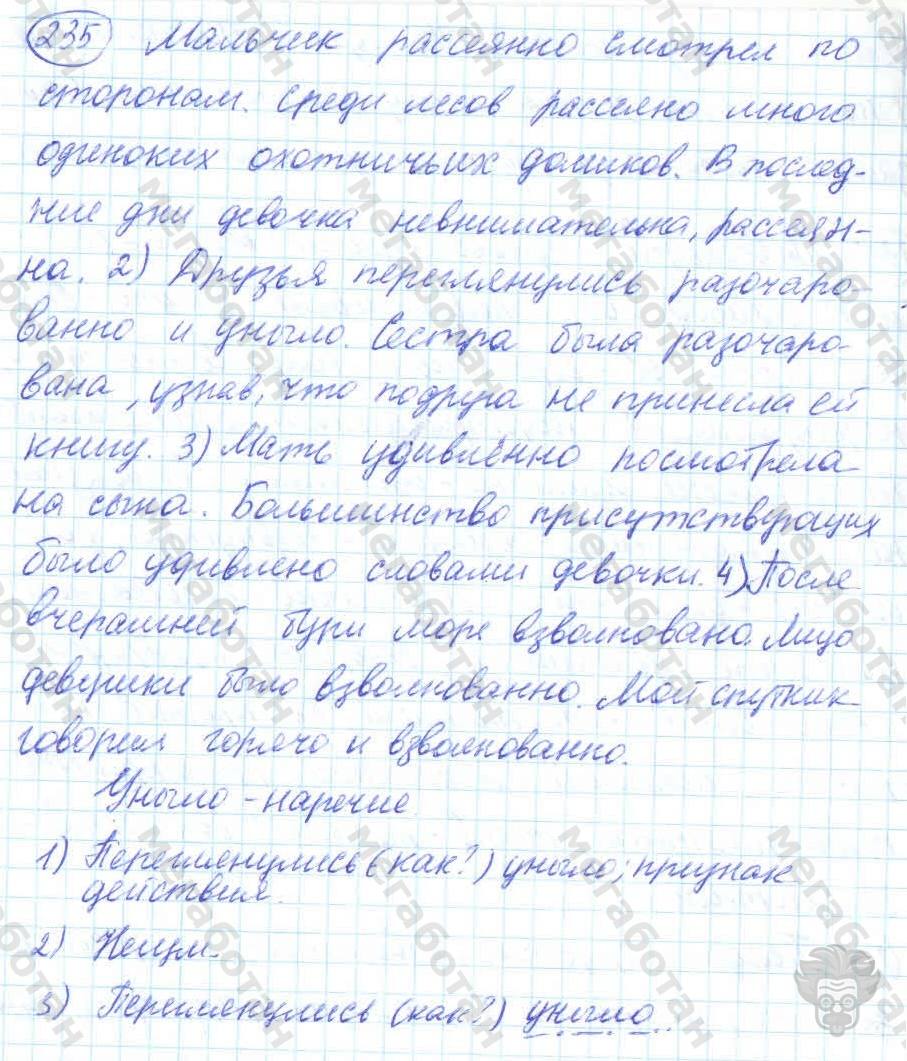 235 Мальчик рассеянно смотрел по
сторонам. Среди лесов рассеяно много
одиноких охотничьих домиков. В послед-
ние дни девочка невнимательна, рассеян-
на. 2) Друзья переглянулись разочаро-
ванно и уныло. Сестра была разочаро-
вана, узнав, что подруга не принесла ей
книгу. 3) Мать удивлённо посмотрела
на сына. Большинство присутствующих
было удивлено словами девочки. 4) После
вчерашней бури море взволновано. Лицо
девушки было взволнованно. Мой спутник
говорил горячо и взволнованно.
Уныло - наречие
1) Переглянулись (как?) уныло; признак
действия.
2) Неизм.
3) Переглянулись (как?) уныло.
мегаботан